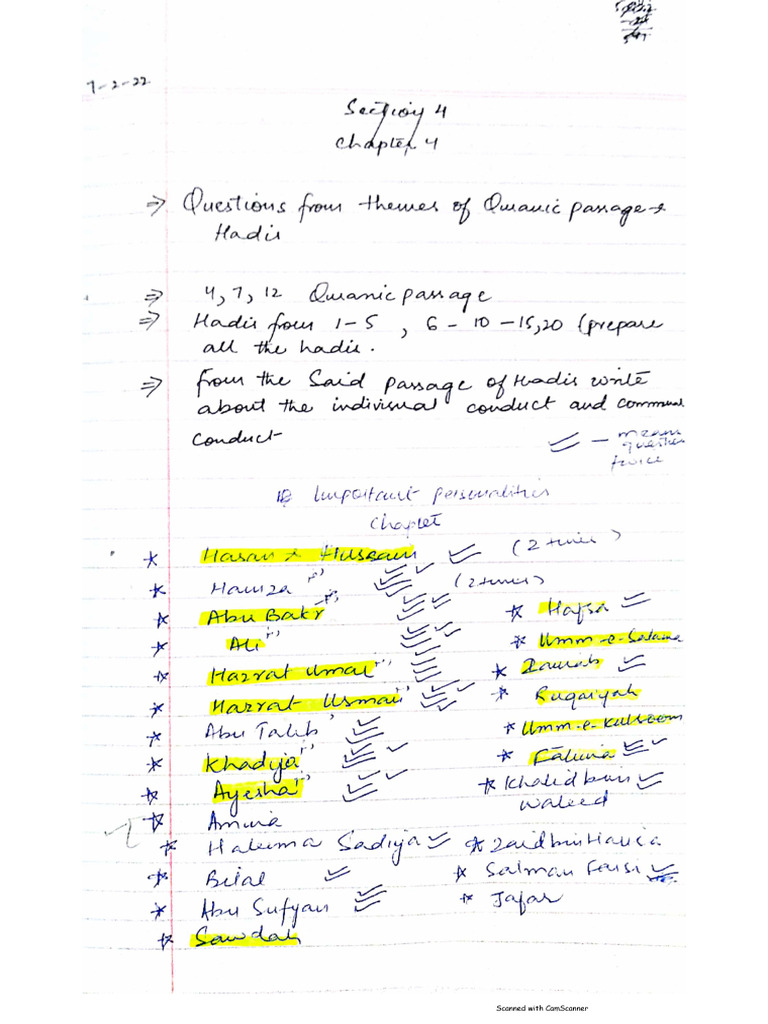 7-2-22
Section 4
Chapter 4
⇒ Questions from themes of Quranic passage &
Hadis
⇒ 4, 7, 12 Quranic passage
⇒ Hadis from 1-5, 6-10-15,20 (prepare
all the hadis.
⇒ from the Said passage of Hadis write
about the indivisual conduct and communal
conduct
— mean
question
twice
Important personalities
Chapter
* Hasan & Hussain (2 times)
* Hamza (2 times)
* Abu Bakr
* Hafsa
* Ali
* Umm-e-Salama
* Hazrat Umar
* Zainab
* Hazrat Usman
* Ruqaiyah
* Abu Talib
* Umm-e-Kulsoom
* Khadija
* Fatima
* Ayesha
* Khalid bin
Waleed
* Amina
* Haleema Sadiya
* Zaid bin Harisa
* Bilal
* Salman Farsi
* Abu Sufyan
* Jafar
* Sawdah
Scanned with CamScanner